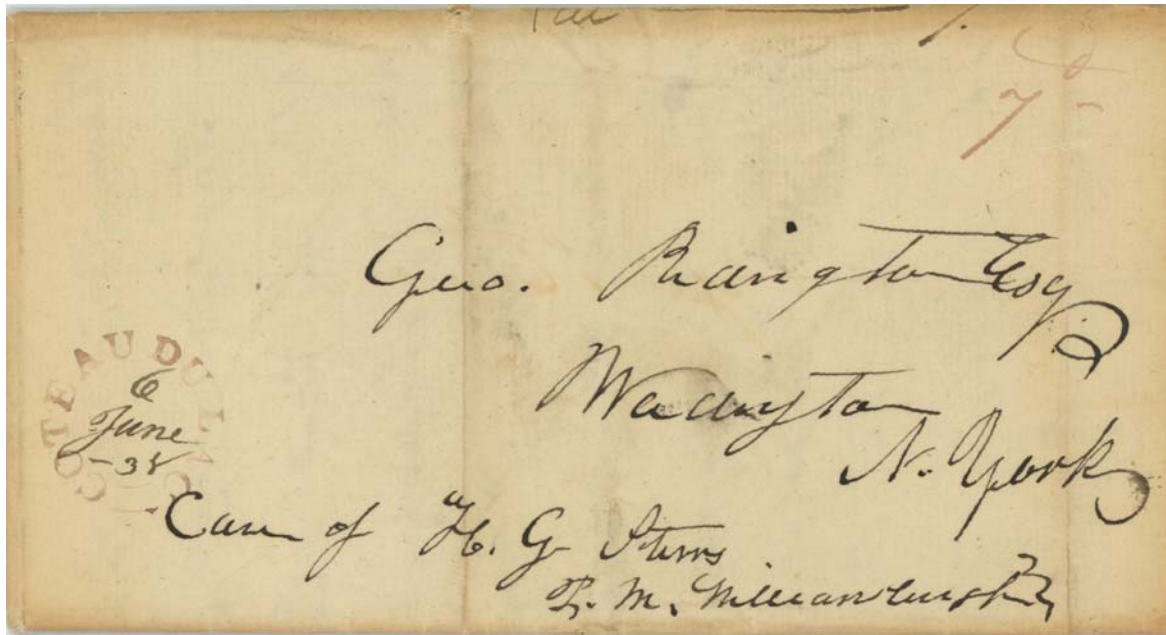 7d
Geo. Redington Esq
Wadington
N. York
COTEAU DU LAC
6
June
-38
Care of H. G.
P. M. Williamsburgh